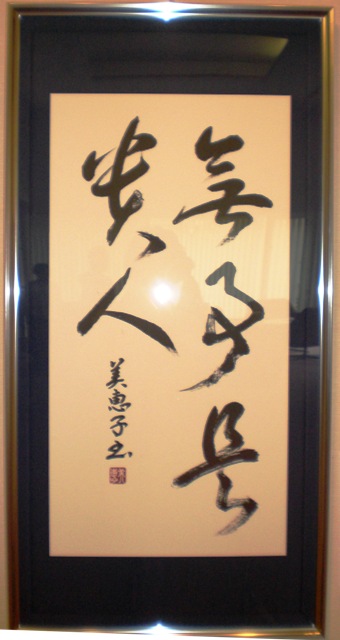 無事是
貴人
美恵子書